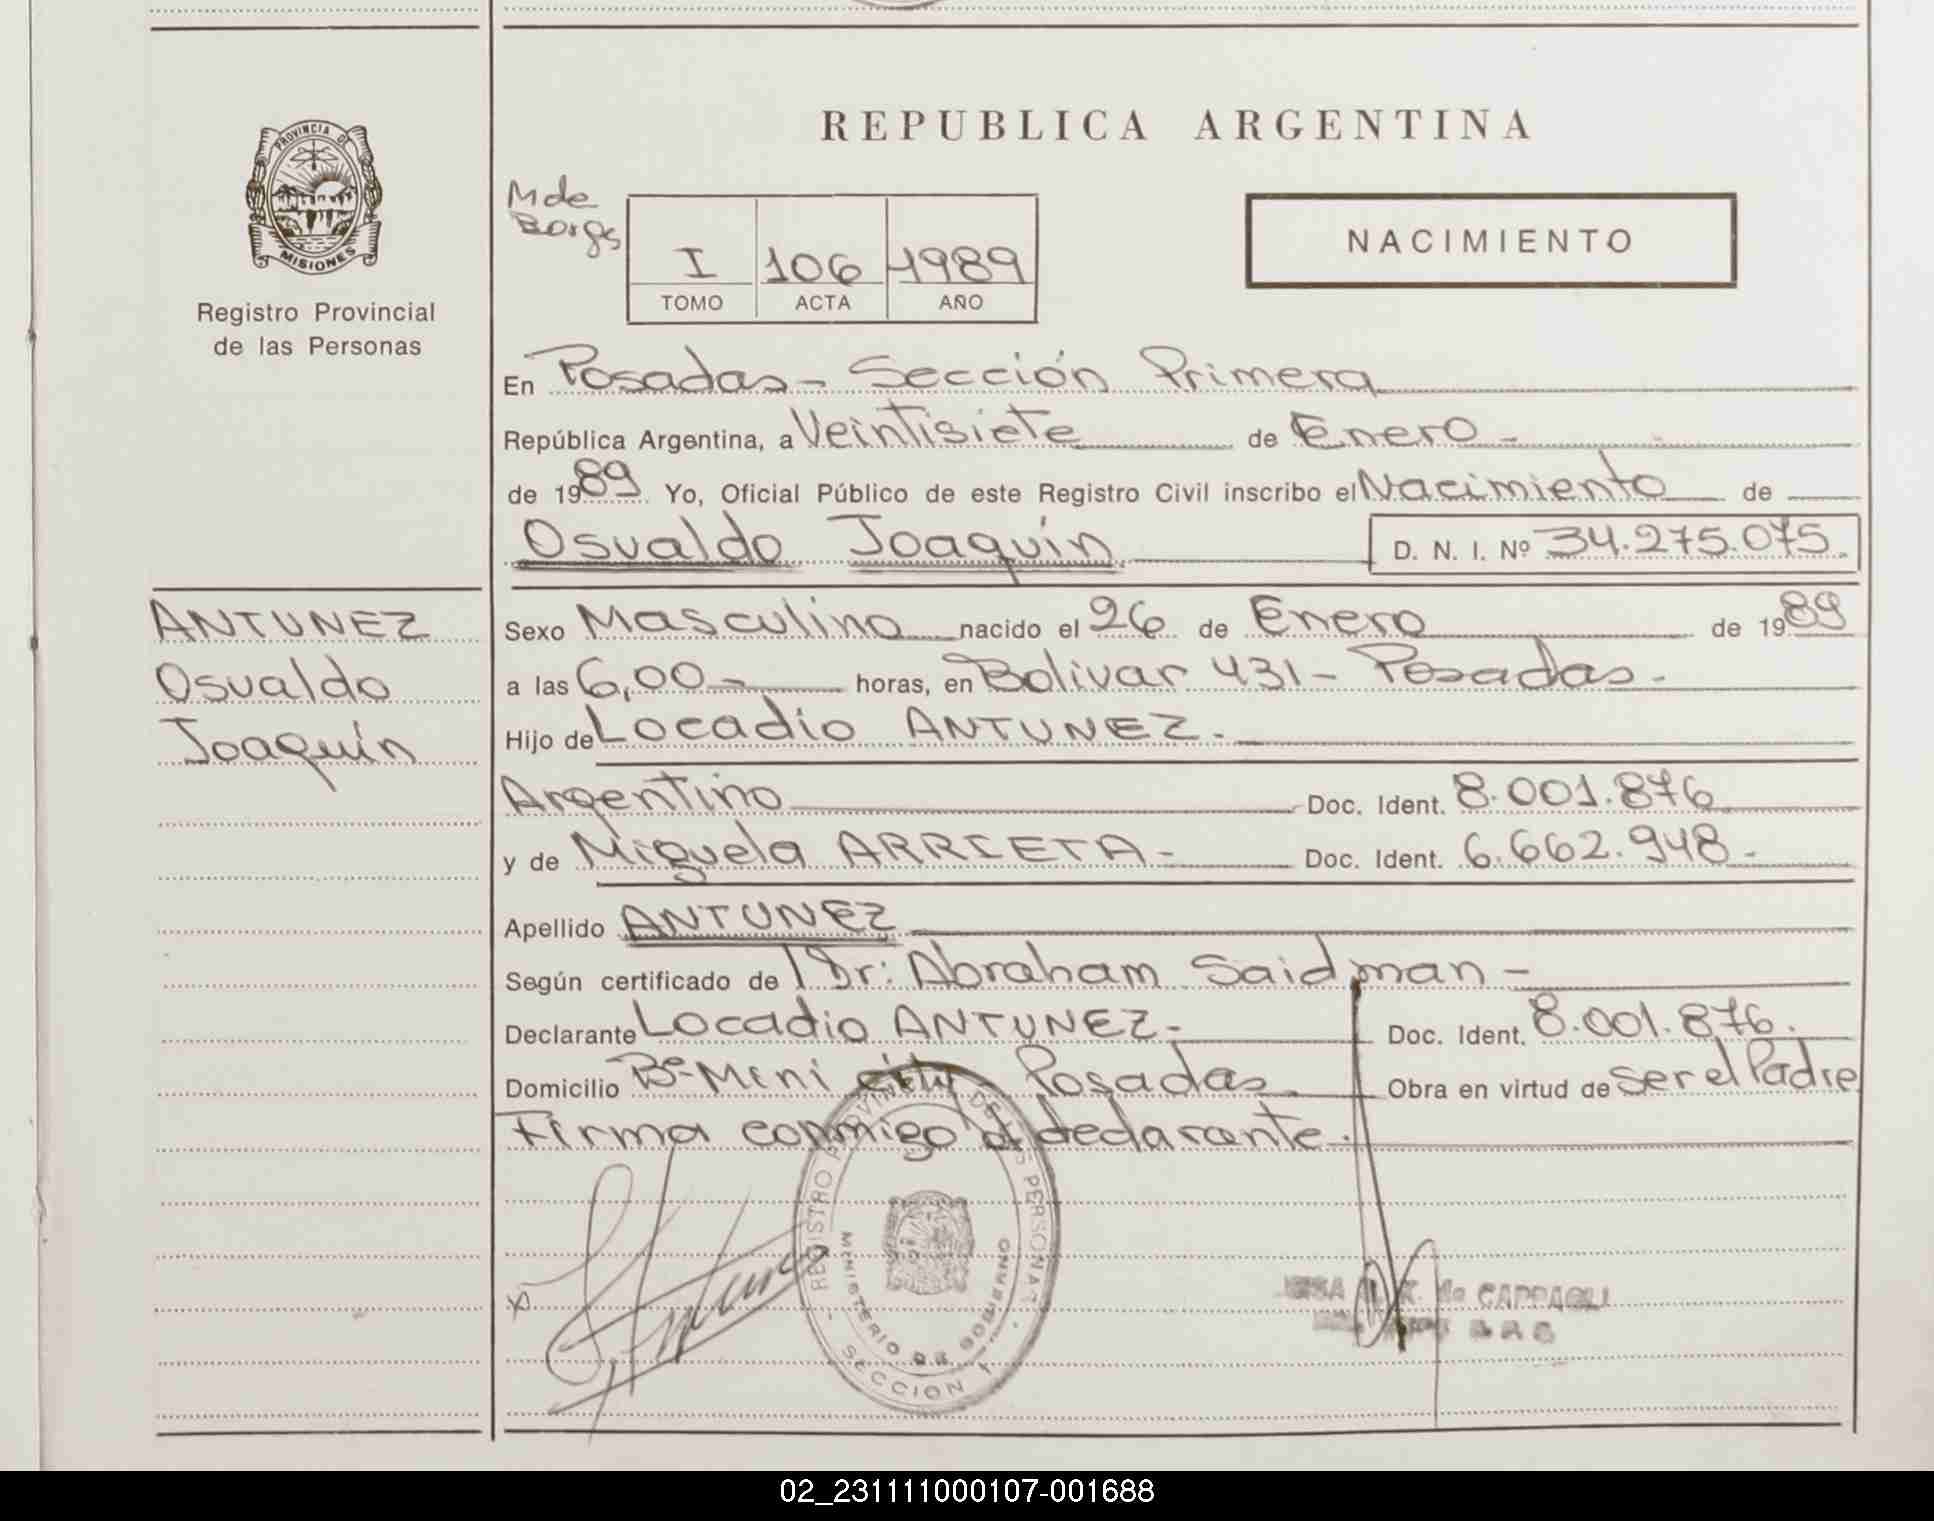 PROVINCIA DE
MISIONES
Registro Provincial
de las Personas
ANTUNEZ
Osvaldo
Joaquín
REPUBLICA ARGENTINA
M de
Borgs
I 106 1989
TOMO ACTA AÑO
NACIMIENTO
En Posadas - Sección Primera
República Argentina, a Veintisiete de Enero -
de 1989 Yo, Oficial Público de este Registro Civil inscribo el Nacimiento de
Osvaldo Joaquín D. N. I. Nº 34.275.075
Sexo Masculino nacido el 26 de Enero de 1989
a las 6,00 - horas, en Bolivar 431 - Posadas.-
Hijo de Locadio ANTUNEZ.-
Argentino Doc. Ident. 8.001.876
y de Miguela ARRIETA - Doc. Ident. 6.662.948-
Apellido ANTUNEZ
Según certificado de Dr: Abraham Saidman -
Declarante Locadio ANTUNEZ- Doc. Ident. 8.001.876.
Domicilio Bº Mini city - Posadas Obra en virtud de ser el Padre
Firma conmigo el declarante.
REGISTRO PROVINCIAL DE LAS PERSONAS
MINISTERIO DE GOBIERNO
SECCION 1
de CAPPAGLI
02_231111000107-001688